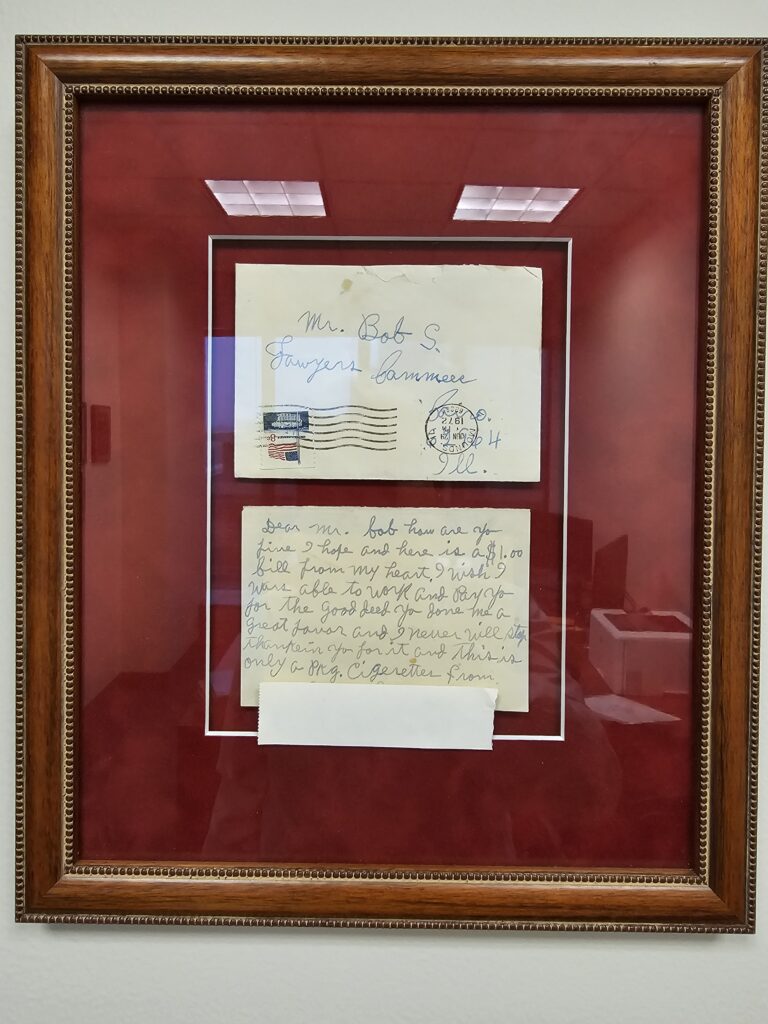 Mr. Bob S.
Lawyers Cammeec
Co.
64
Ill.
8c
1972
JUN
PM
Dear Mr. bob how are yo
fine I hope and here is a $1.00
bill from my heart, I wish I
wars able to work and Pay yo
for the good deed yo done me a
great favor and I never will stop
thankein yo for it and this is
only a Pkg. Cigerettes from